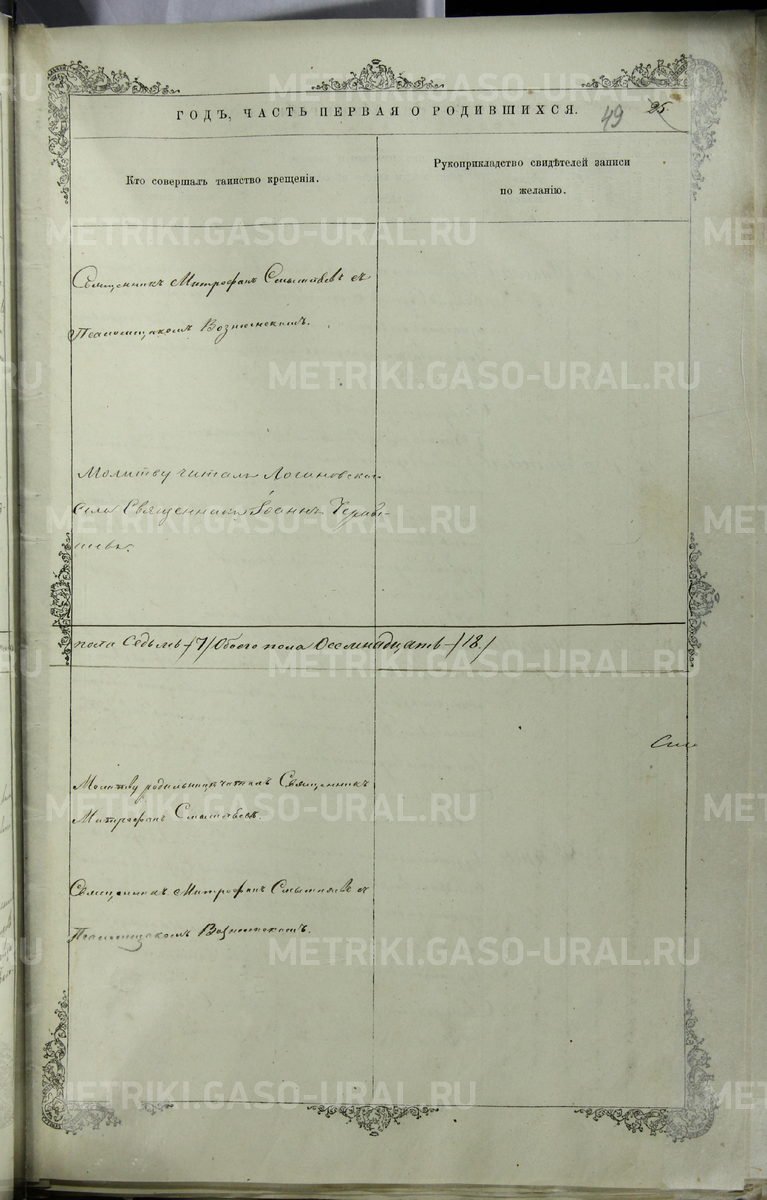 METRIKI.GASO-URAL.RU
ГОДЪ, ЧАСТЬ ПЕРВАЯ О РОДИВШИХСЯ. 49 25
Кто совершалъ таинство крещенія.
Рукоприкладство свидѣтелей записи
по желанію.
Священникъ Митрофанъ съ
Псаломщикомъ Вознесенскимъ.
Молитву читалъ Логиновска-
села Священникъ Іоаннъ
пола Седьмь /7/ Обоего пола Осемнадцать /18/
Молитву родильницѣ читалъ Священникъ
Митрофанъ
Священникъ Митрофанъ съ
Псаломщикомъ Вознесенскимъ.